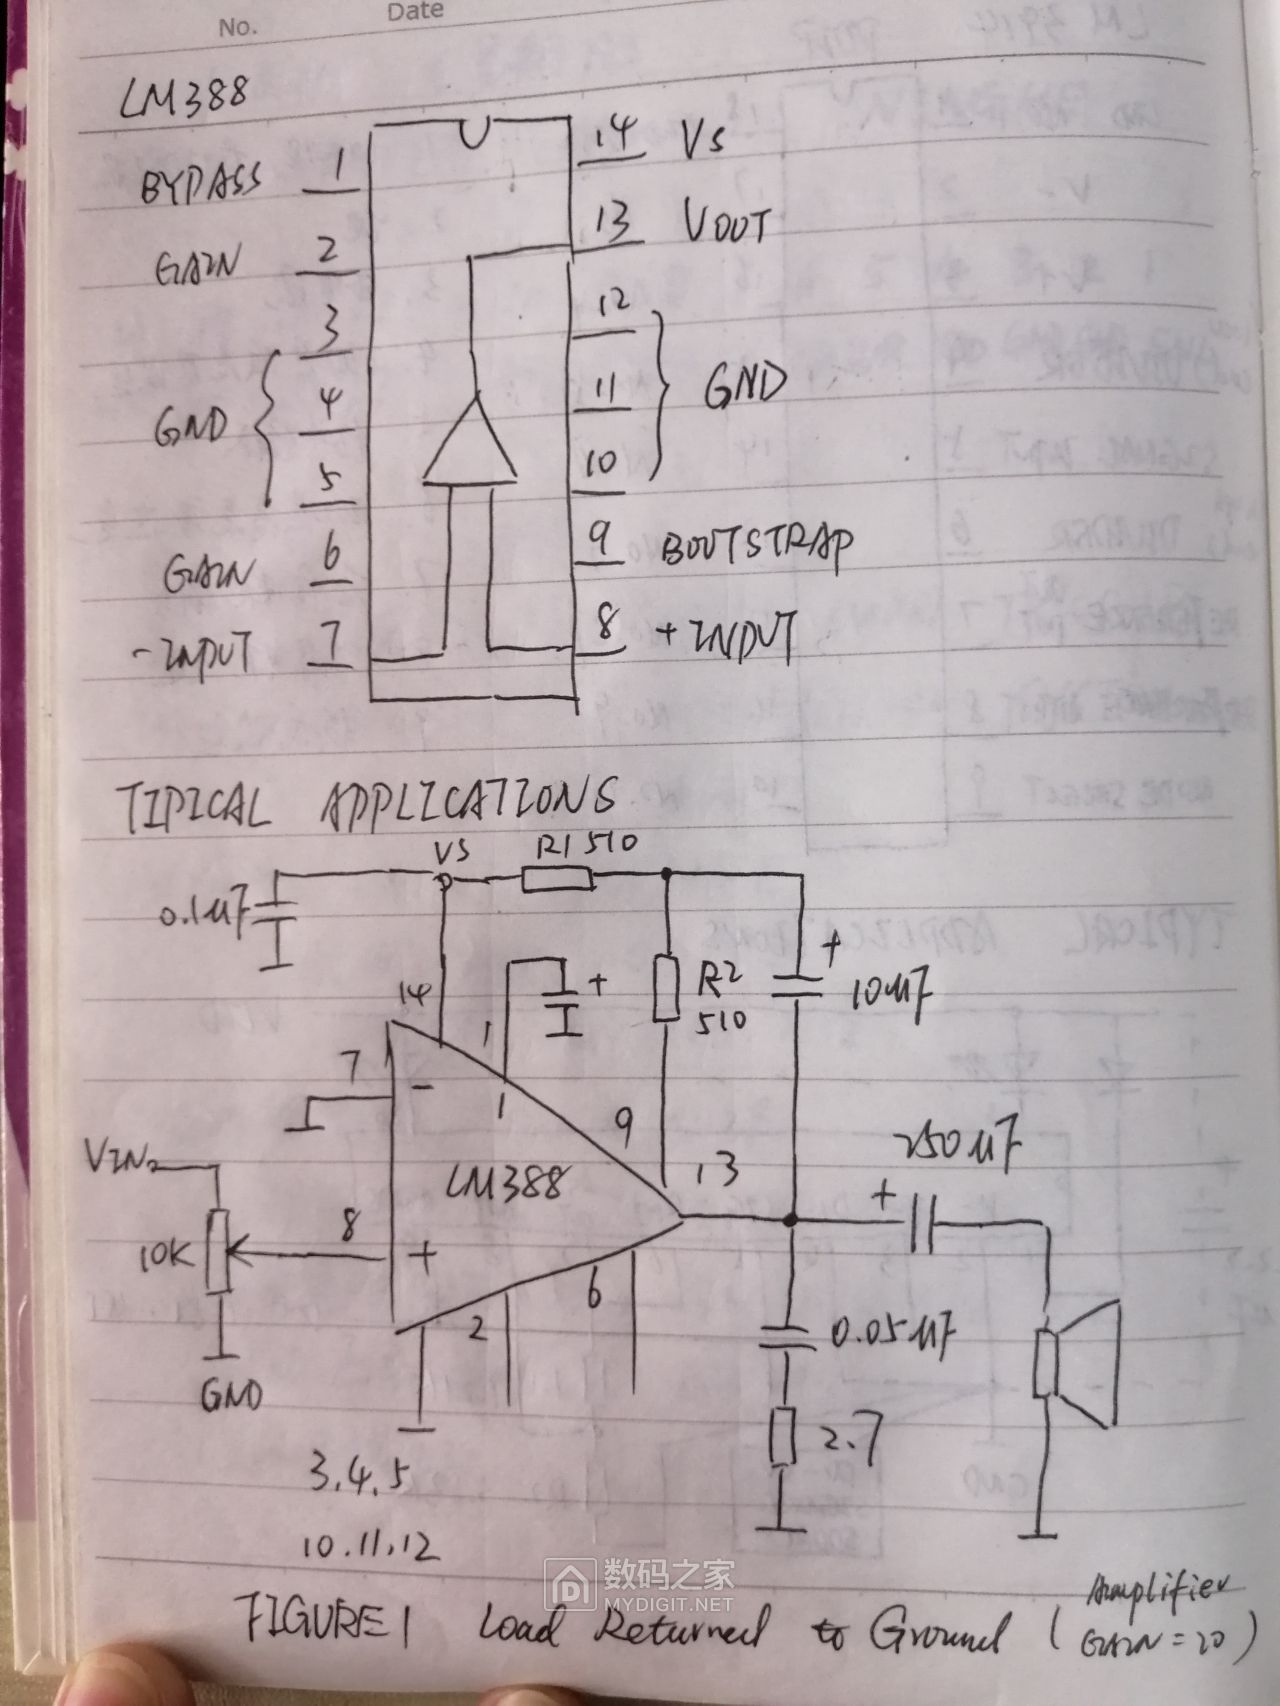 No.
Date
LM388
BYPASS 1
14 Vs
GAIN 2
13 VOUT
3
12
GND
4
11
GND
5
10
GAIN 6
9 BOOTSTRAP
-INPUT 7
8 +INPUT
TIPICAL APPLICATIONS
VS
R1 510
0.1μF
+
+
R2
510
10μF
14
1
7
-
1
9
13
LM388
VIN
10K
8
+
250μF
+
2
6
0.05μF
GND
2.7
3.4.5
10.11.12
数码之家
MYDIGIT.NET
FIGURE1 Load Returned to Ground (Amplifier
GAIN=20)